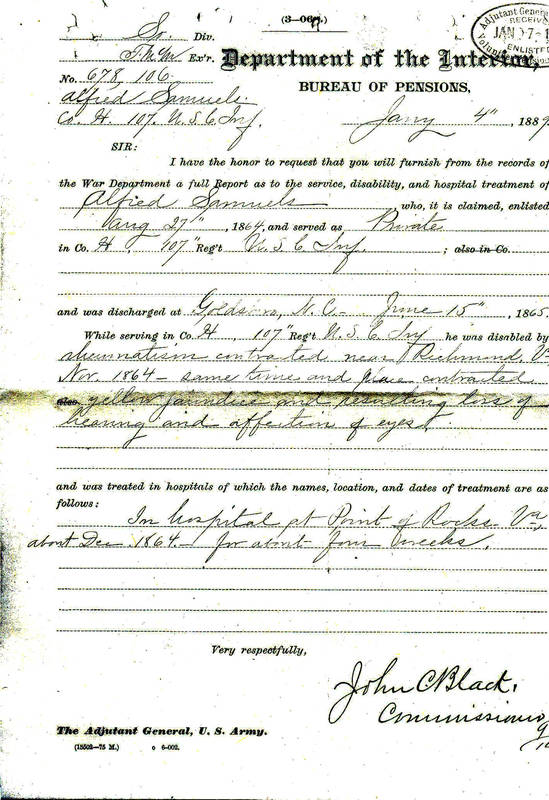 (3-060.)
So. Div.
J.M.M. Ex'r.
No. 678,106
Alfred Samuels
Co. H. 107. U.S.C. Inf.
Adjutant General
RECEIV
JAN 7-1
ENLISTE
Department of the Interior,
BUREAU OF PENSIONS,
Jany 4", 1889
SIR:
I have the honor to request that you will furnish from the records of
the War Department a full Report as to the service, disability, and hospital treatment of
Alfred Samuels, who, it is claimed, enlisted
Aug 27", 1864, and served as Private
in Co. H, 107" Reg't U.S.C. Inf; also in Co.
and was discharged at Goldsboro, N.C. - June 15", 1865.
While serving in Co. H, 107" Reg't U.S.C. Inf he was disabled by
rheumatism contracted near Richmond, Va
Nov. 1864 - same time and place, contracted
also yellow jaundice and resulting loss of
hearing and affection of eyes.
and was treated in hospitals of which the names, location, and dates of treatment are as
follows:
In hospital at Point of Rocks Va,
about Dec. 1864 - for about four weeks.
Very respectfully,
John C Black,
Commissioner
The Adjutant General, U. S. Army.
(15502-75 M.) 6-002.